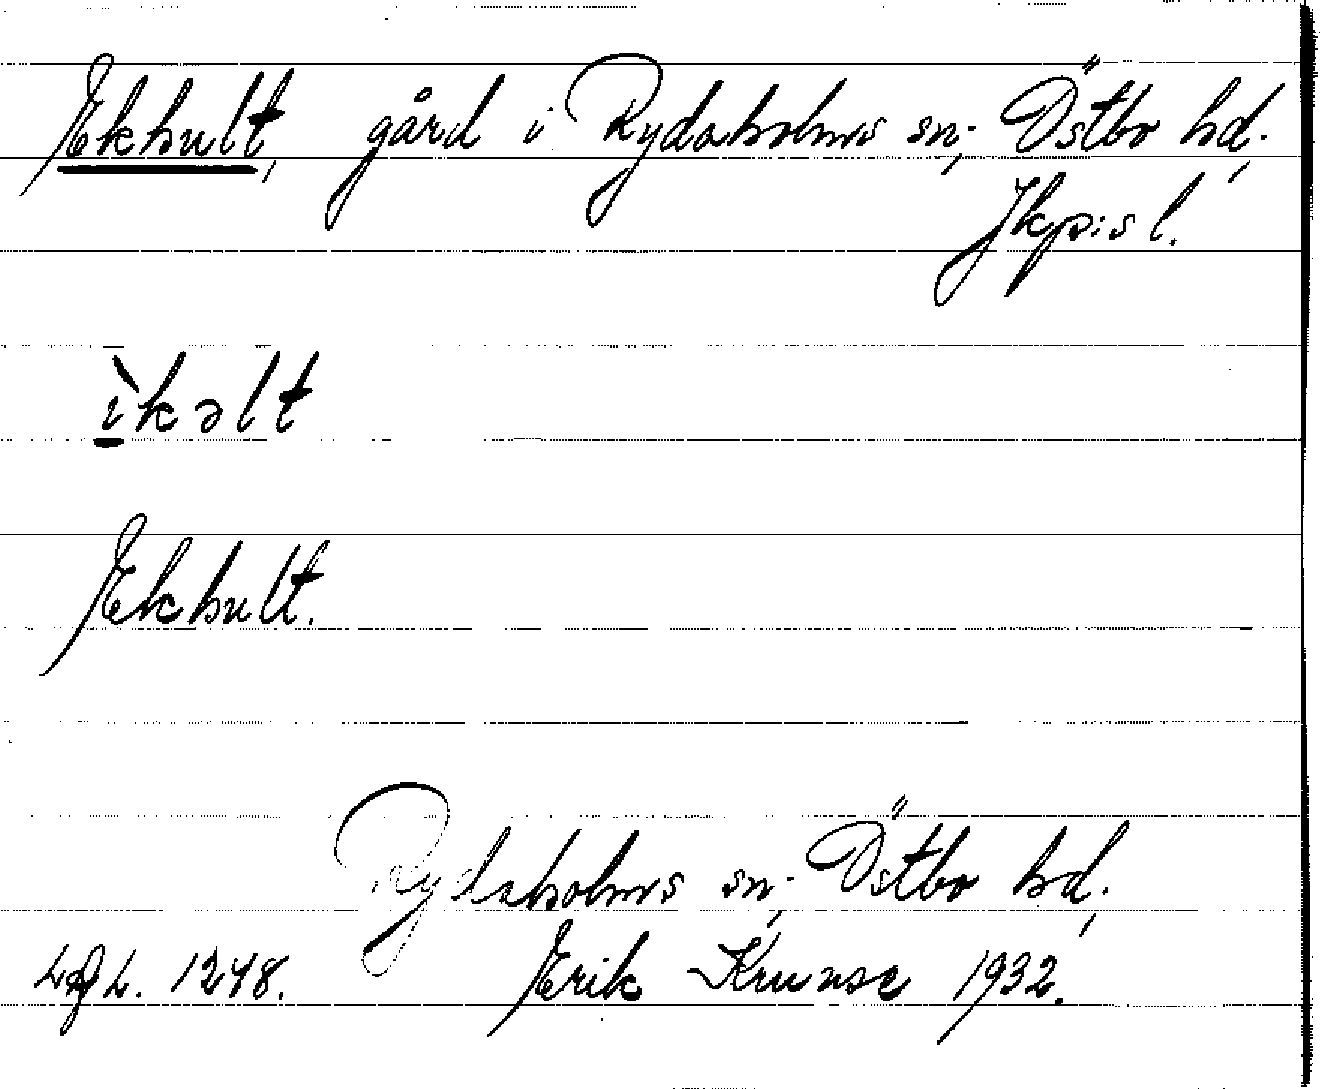 Ekhult, gård i Rydaholms sn., Östbo hd.,
Jkp:s l.
ìkəlt
Ekhult.
Rydaholms sn., Östbo hd.,
1248. Erik Krunse 1932.